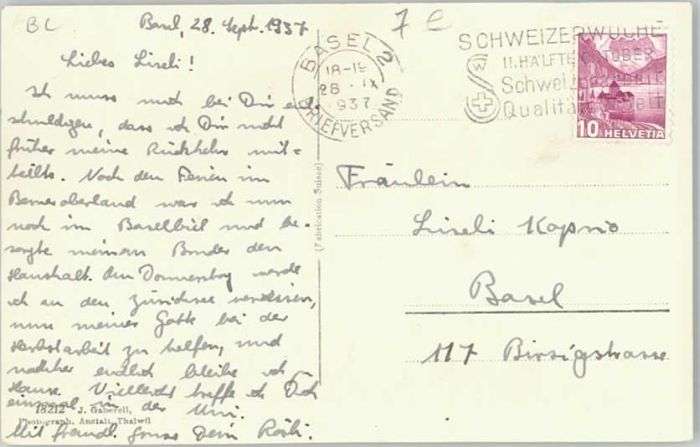 BL
Basel, 28. Sept. 1937
Liebes Liseli!
Ich muss mich bei Dir ent-
schuldigen, dass ich Dir nicht
früher meine Rückkehr mit-
teilte. Nach den Ferien im
Berneroberland war ich nun
noch im Baselbiet und be-
sorgte meinem Bruder den
Haushalt. Am Donnerstag werde
ich an den Zürichsee verreisen,
um meiner Gotte bei der
Herbstarbeit zu helfen, und
nachher endlich bleibe ich
zu Hause. Vielleicht treffe ich Dich
einmal in der Uni.
Mit freundl. Gruss Dein Röbi.
18212 J. Gaberell,
Photograph. Anstalt Thalwil
(Fabrication Suisse)
7 e
BASEL 2
18-19
28. IX
1937
BRIEFVERSAND
SCHWEIZERWOCHE
II. HÄLFTE OKTOBER
Schweizer
Qualität
10 HELVETIA
Fräulein
Liseli
Basel
117 Birsigstrasse